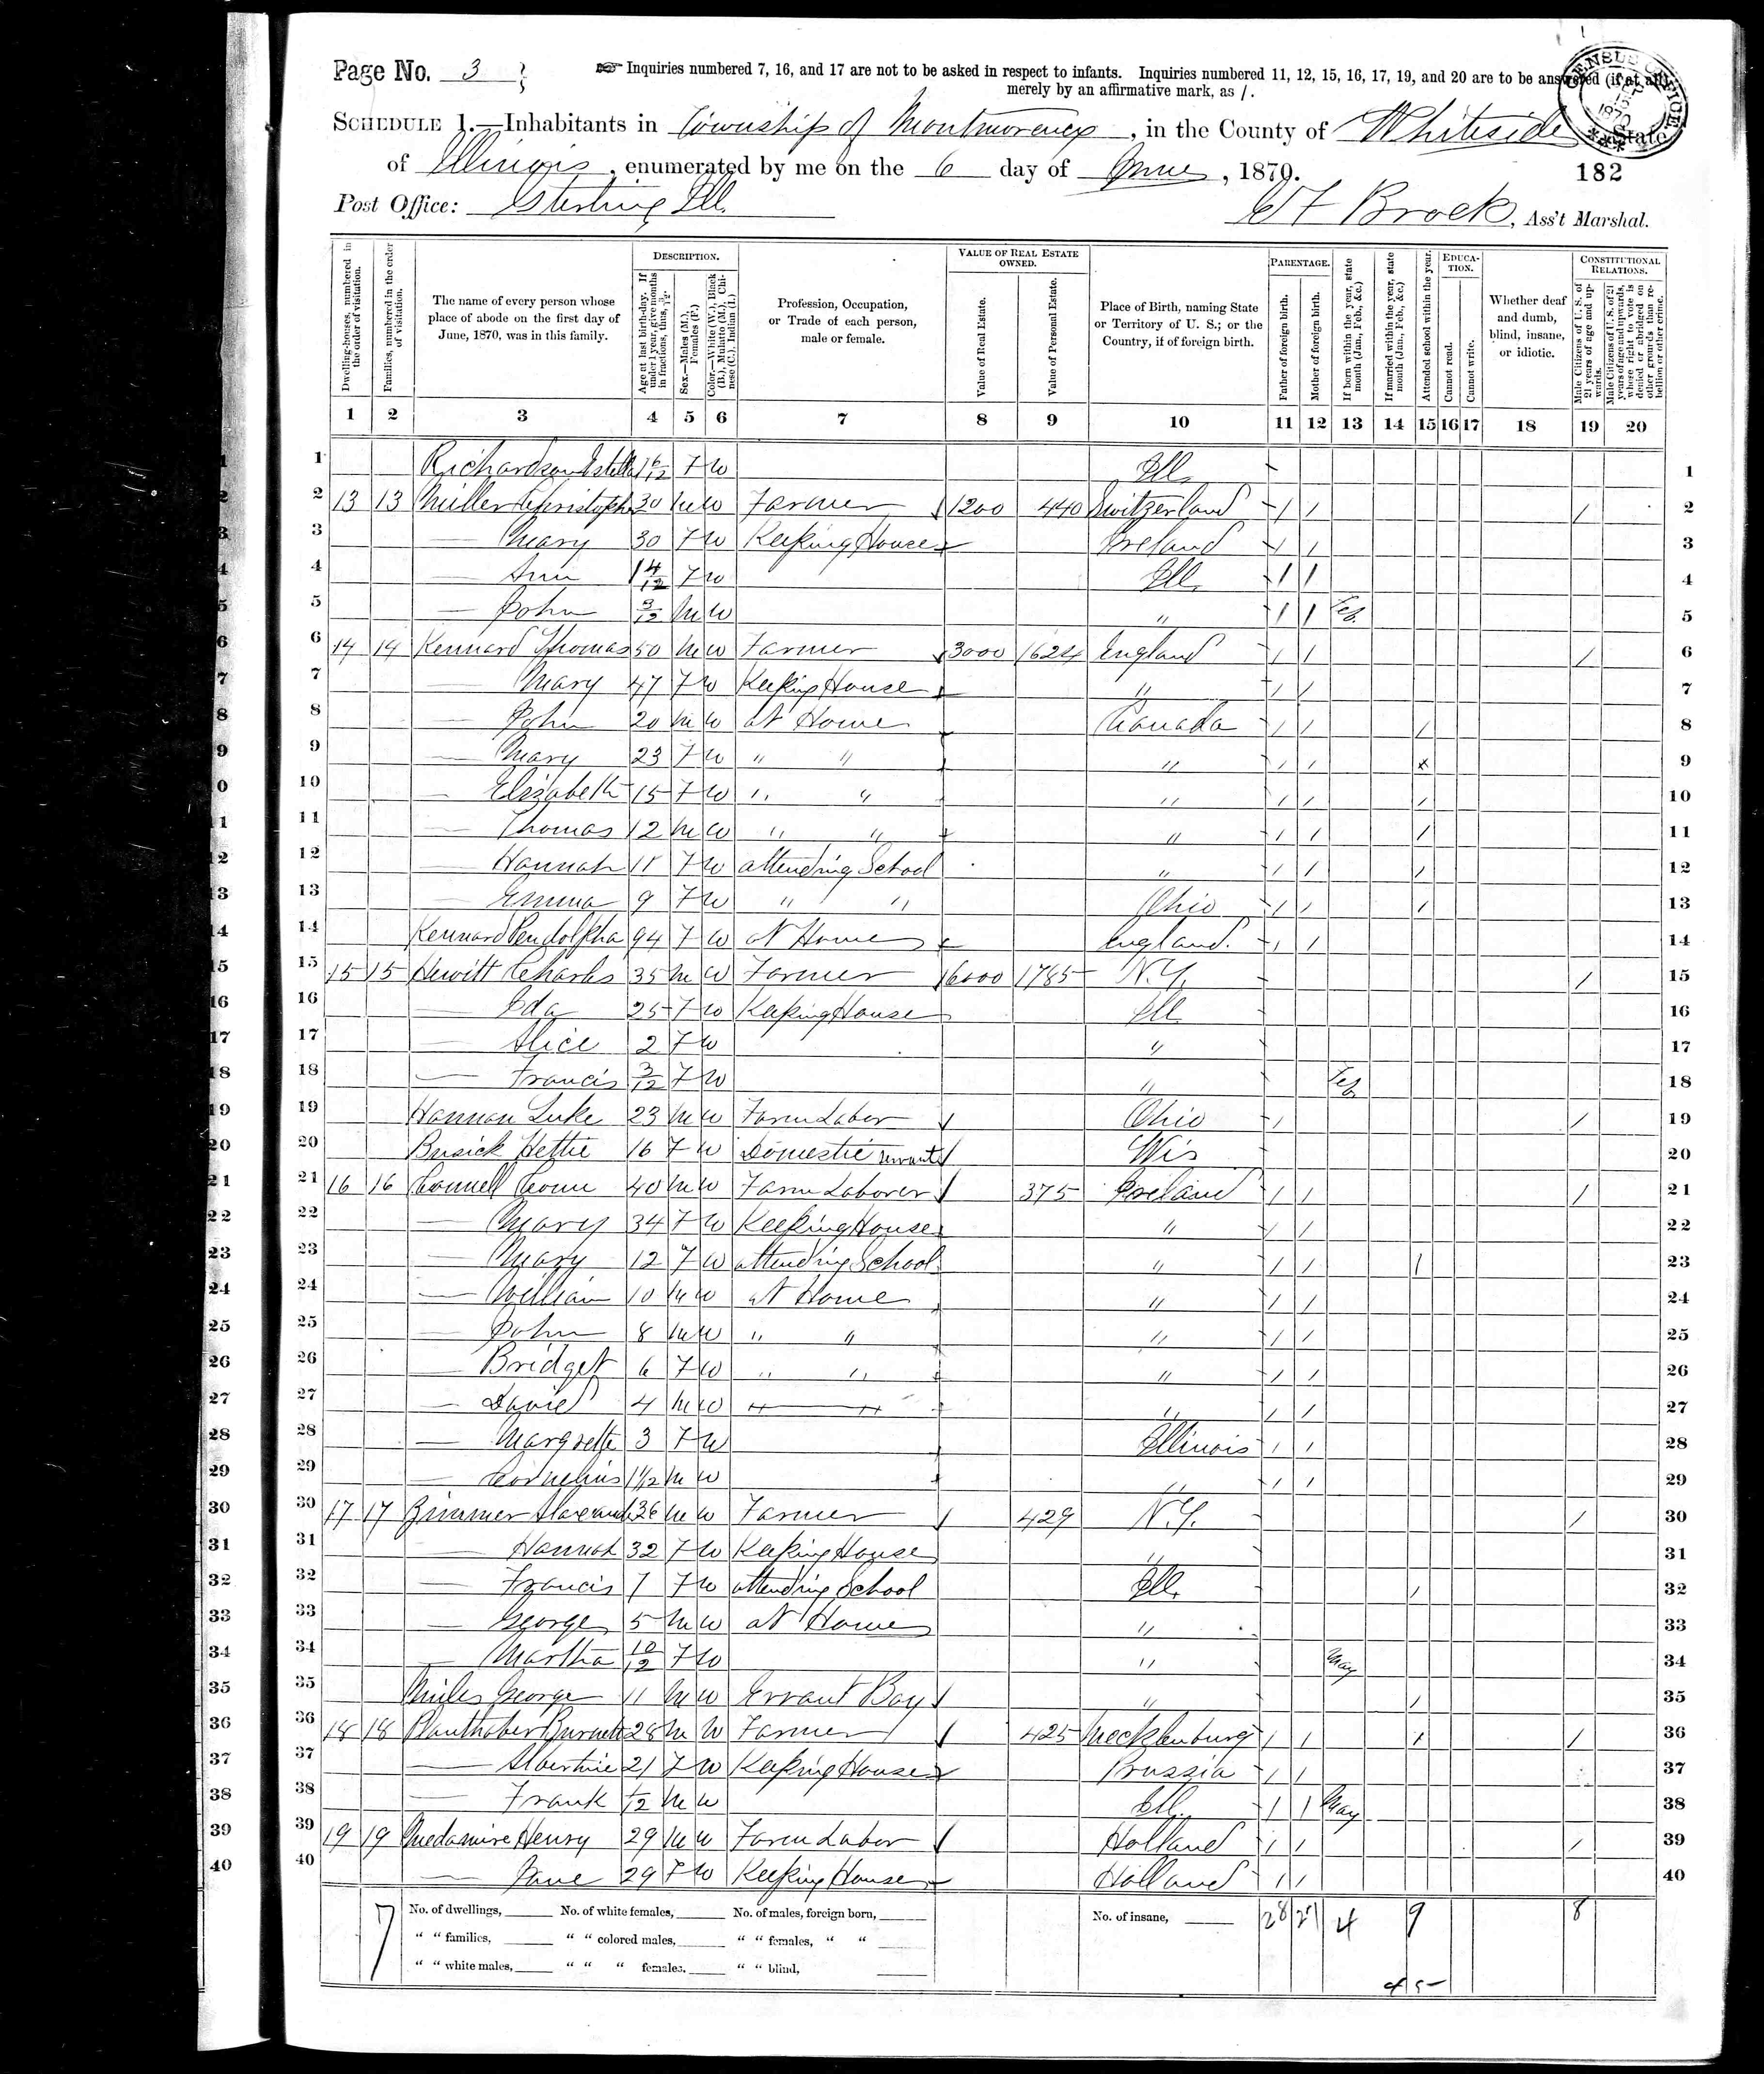 Page No. 3
☞ Inquiries numbered 7, 16, and 17 are not to be asked in respect to infants. Inquiries numbered 11, 12, 15, 16, 17, 19, and 20 are to be answered (if at all)
merely by an affirmative mark, as /.
SCHEDULE 1.—Inhabitants in Township of Montmorency, in the County of Whiteside, State
of Illinois, enumerated by me on the 6 day of June, 1870.
182
Post Office: Sterling Ill.
Brock, Ass't Marshal.
CENSUS OFFICE 1870
DESCRIPTION. VALUE OF REAL ESTATE OWNED. PARENTAGE. EDUCATION. CONSTITUTIONAL RELATIONS.
Dwelling-houses, numbered in the order of visitation.
Families, numbered in the order of visitation.
The name of every person whose place of abode on the first day of June, 1870, was in this family.
Age at last birth-day. If under 1 year, give months in fractions, thus, 3/12.
Sex.—Males (M.), Females (F.)
Color.—White (W.), Black (B.), Mulatto (M.), Chinese (C.), Indian (I.)
Profession, Occupation, or Trade of each person, male or female.
Value of Real Estate.
Value of Personal Estate.
Place of Birth, naming State or Territory of U. S.; or the Country, if of foreign birth.
Father of foreign birth.
Mother of foreign birth.
If born within the year, state month (Jan., Feb., &c.)
If married within the year, state month (Jan., Feb., &c.)
Attended school within the year.
Cannot read.
Cannot write.
Whether deaf and dumb, blind, insane, or idiotic.
Male Citizens of U. S. of 21 years of age and upwards.
Male Citizens of U. S. of 21 years of age and upwards, where right to vote is denied or abridged on other grounds than rebellion or other crime.
1 2 3 4 5 6 7 8 9 10 11 12 13 14 15 16 17 18 19 20
1 Richardson Estella 1 6/12 F W Ill. 1
2 13 13 Miller Christopher 30 M W Farmer 1200 440 Switzerland / / / 2
3 — Mary 30 F W Keeping House Ireland / / 3
4 — Ann 1 4/12 F W Ill. / / 4
5 — John 3/12 M W " / / Feb. 5
6 14 14 Kennard Thomas 50 M W Farmer 3000 1624 England / / / 6
7 — Mary 47 F W Keeping House " / / 7
8 — John 20 M W at Home Canada / / / 8
9 — Mary 23 F W " " " / / x 9
10 — Elizabeth 15 F W " " " / / / 10
11 — Thomas 12 M W " " " / / / 11
12 — Hannah 11 F W attending School " / / / 12
13 — Emma 9 F W " " Ohio / / / 13
14 Kennard 94 F W at Home England. / / 14
15 15 15 Hewitt Charles 35 M W Farmer 6000 1785 N.Y. / 15
16 — Ida 25 F W Keeping House Ill 16
17 — Alice 2 F W " 17
18 — Francis 3/12 F W " Feb 18
19 Hannan Luke 23 M W Farm Labor Ohio / / 19
20 Busick Hettie 16 F W Domestic servant Wis 20
21 16 16 Connell 40 M W Farm Laborer 375 Ireland / / / 21
22 — Mary 34 F W Keeping House " / / 22
23 — Mary 12 F W attending School " / / / 23
24 — William 10 M W at Home " / / 24
25 — John 8 M W " " " / / 25
26 — Bridget 6 F W " " " / / 26
27 — David 4 M W " / / 27
28 — Margrette 3 F W Illinois / / 28
29 — Cornelius 1 1/2 M W " / / 29
30 17 17 Zimmer 36 M W Farmer 429 N.Y. / 30
31 — Hannah 32 F W Keeping House " 31
32 — Francis 7 F W attending School Ill. / 32
33 — George 5 M W at Home " 33
34 — Martha 10/12 F W " May 34
35 Miles George 11 M W Errant Boy " / 35
36 18 18 28 M W Farmer 425 Mecklenburg / / / / 36
37 — Albertine 21 F W Keeping House Prussia / / 37
38 — Frank 1/12 M W Ill. / / May 38
39 19 19 Henry 29 M W Farm Labor Holland / / / 39
40 — Jane 29 F W Keeping House Holland / / 40
7
No. of dwellings, No. of white females, No. of males, foreign born, No. of insane, 28 27 4 9 8
" " families, " " colored males, " " females, " "
" " white males, " " " females, " " blind,